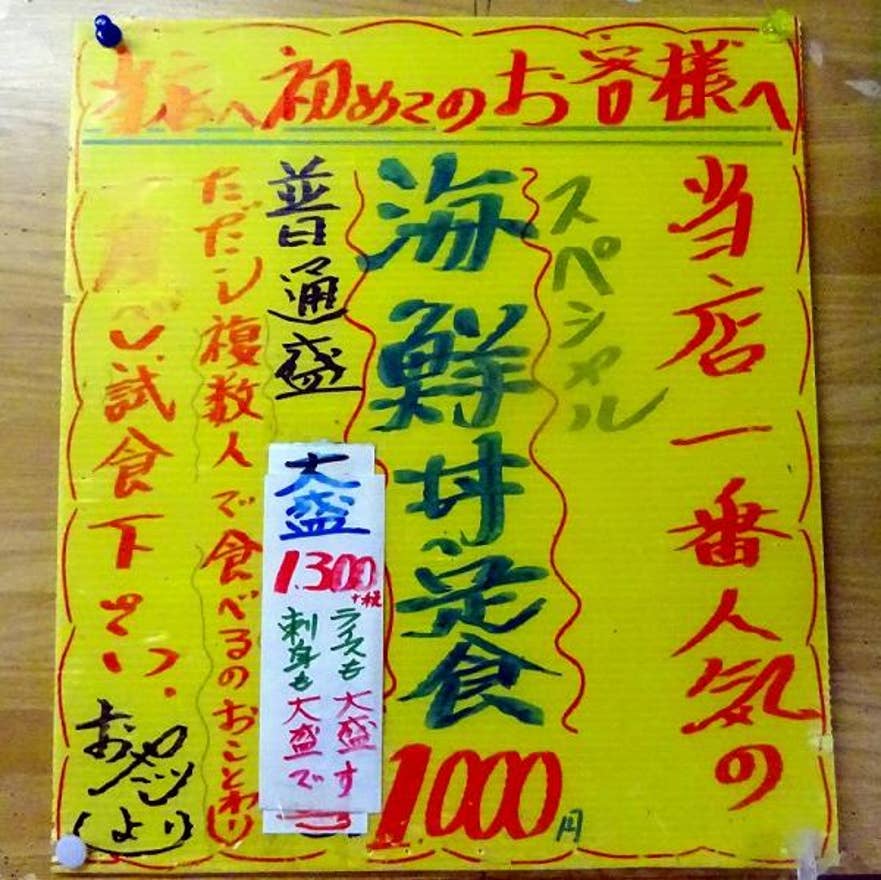 当店へ初めてのお客様へ
当店一番人気の
スペシャル
海鮮丼定食
1.000円
普通盛
大盛
1.300
+税
ライスも大盛す
刺身も大盛で
ただし複数人で食べるのおことわり
一度ご試食下さい。
おやじ
(より)